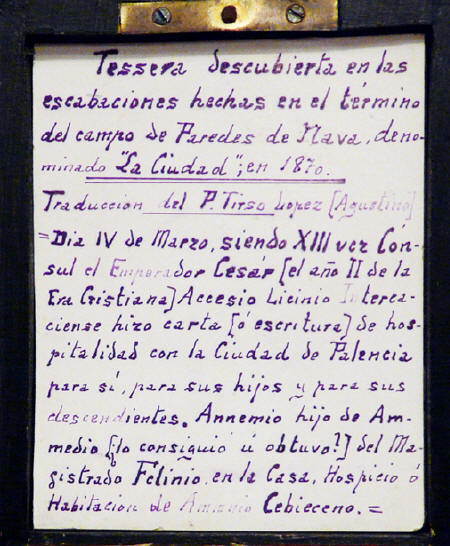 Tessera descubierta en las
escabaciones hechas en el término
del campo de Paredes de Nava, deno-
minado "La Ciudad"; en 1870.
Traduccion del P. Tirso Lopez [Agustino]
=Dia IV de Marzo, siendo XIII vez Cón-
sul el Emperador Cesár [el año II de la
Era Cristiana] Accesio Licinio Interca-
ciense hizo carta [ó escritura] de hos-
pitalidad con la Ciudad de Palencia
para sí, para sus hijos y para sus
descendientes. Annemio hijo de Am-
medio [lo consiguió ú obtuvo?] del Ma-
gistrado Felinio en la Casa, Hospicio ó
Habitacion de Cebieceno.=